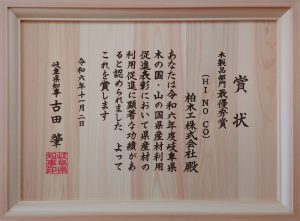 賞状
木製品部門 最優秀賞
(HINOCO)
柏木工株式会社 殿
あなたは令和六年度岐阜県
木の国・山の国県産材利用
促進表彰において県産材の
利用促進に顕著な功績があ
ると認められました よって
これを賞します
令和六年十一月二日
岐阜県知事 古田 肇